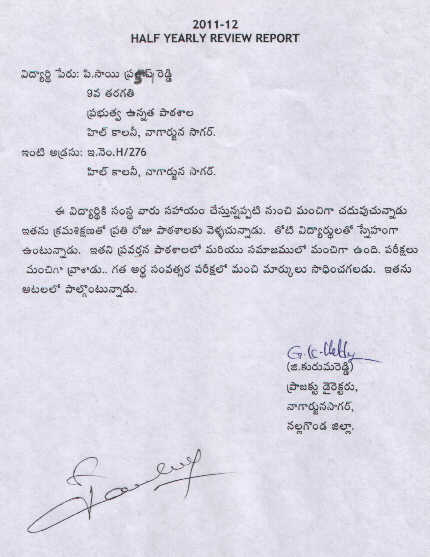 2011-12
HALF YEARLY REVIEW REPORT
విద్యార్థి పేరు: పి.సాయి ప్రకాష్ రెడ్డి
9వ తరగతి
ప్రభుత్వ ఉన్నత పాఠశాల
హిల్ కాలనీ, నాగార్జున సాగర్.
ఇంటి అడ్రసు: ఇ.నెం.H/276
హిల్ కాలనీ, నాగార్జున సాగర్.
ఈ విద్యార్థికి సంస్థ వారు సహాయం చేస్తున్నప్పటి నుంచి మంచిగా చదువుచున్నాడు
ఇతను క్రమశిక్షణతో ప్రతి రోజు పాఠశాలకు వెళ్ళుచున్నాడు. తోటి విద్యార్థులతో స్నేహంగా
ఉంటున్నాడు. ఇతని ప్రవర్తన పాఠశాలలో మరియు సమాజములో మంచిగా ఉంది. పరీక్షలు
మంచిగా వ్రాశాడు.. గత అర్థ సంవత్సర పరీక్షలో మంచి మార్కులు సాధించగలడు. ఇతను
ఆటలలో పాల్గొంటున్నాడు.
(జి.కురుమరెడ్డి)
ప్రాజక్టు డైరెక్టరు,
నాగార్జునసాగర్,
నల్లగొండ జిల్లా.